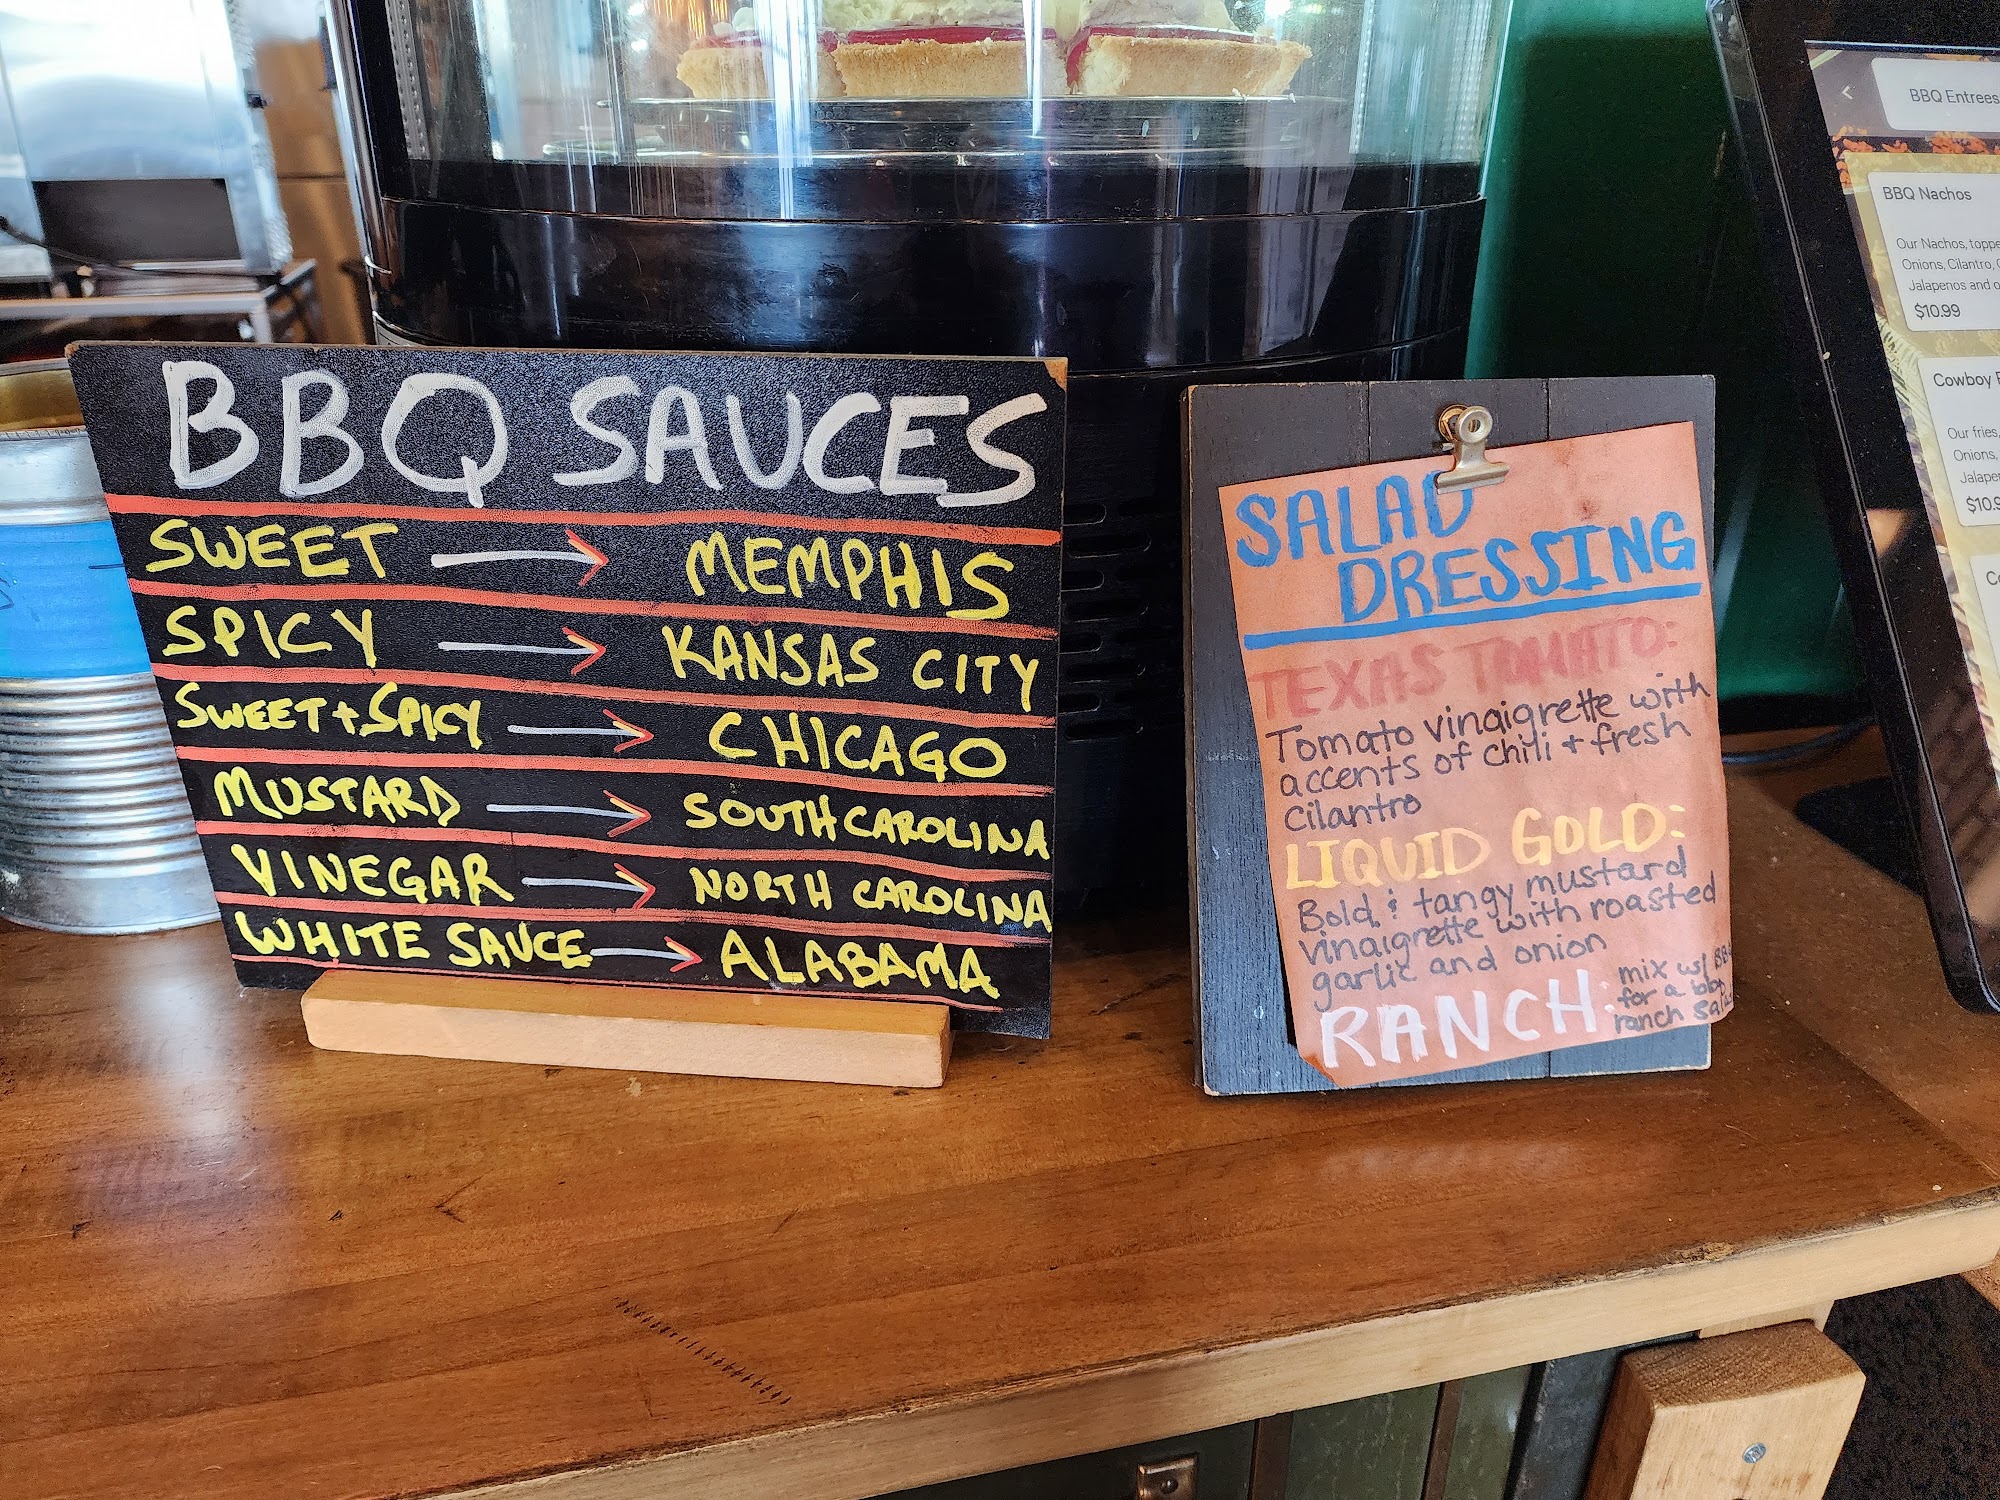 BBQ SAUCES
SWEET → MEMPHIS
SPICY → KANSAS CITY
SWEET + SPICY → CHICAGO
MUSTARD → SOUTH CAROLINA
VINEGAR → NORTH CAROLINA
WHITE SAUCE → ALABAMA
SALAD
DRESSING
TEXAS TOMATO:
Tomato vinaigrette with
accents of chili + fresh
cilantro
LIQUID GOLD:
Bold & tangy mustard
vinaigrette with roasted
garlic and onion
RANCH:
mix w/
for a bbq
ranch
BBQ Entrees
BBQ Nachos
Our Nachos,
Onions, Cilantro,
Jalapenos and
$10.99
Cowboy
Our fries,
Onions,